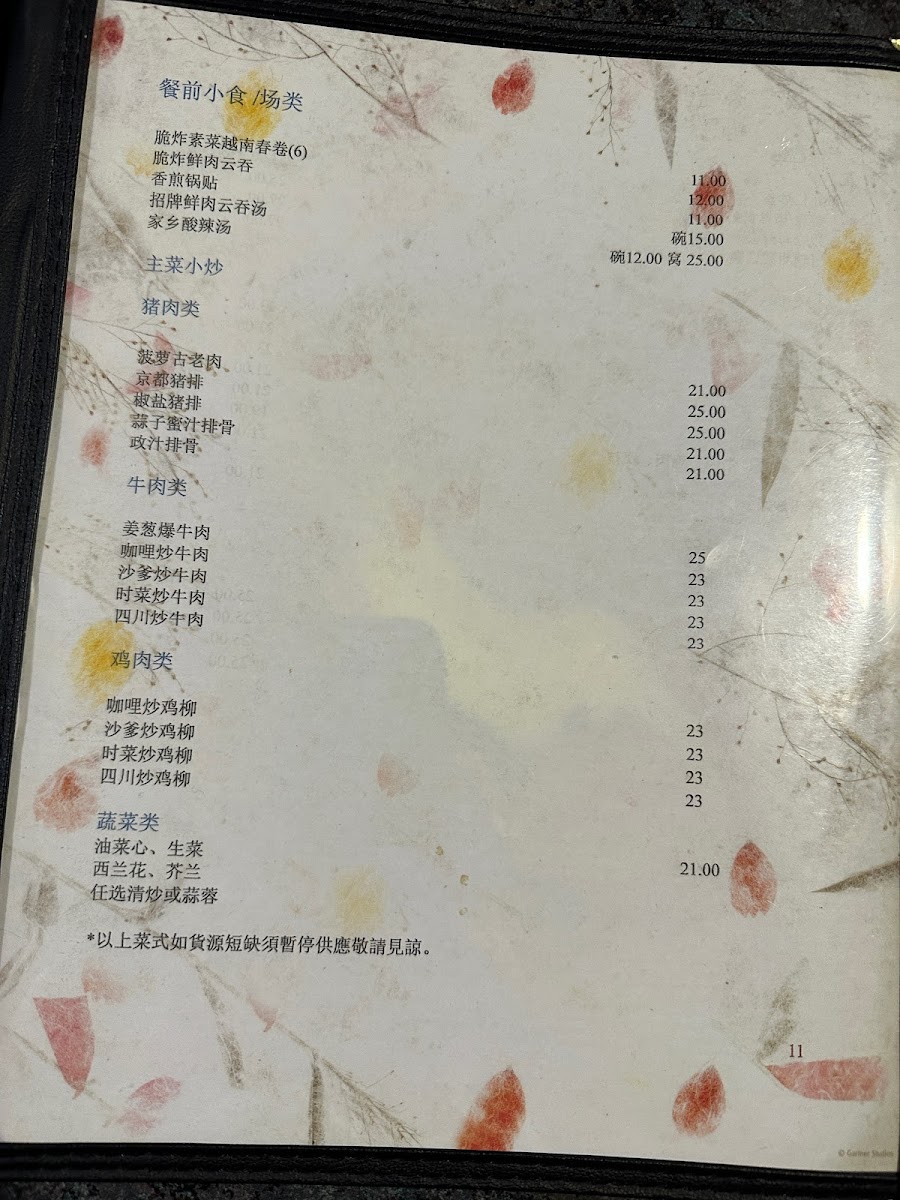 餐前小食 /场类
脆炸素菜越南春卷(6) 11.00
脆炸鲜肉云吞 12.00
香煎锅贴 11.00
招牌鲜肉云吞汤 碗15.00
家乡酸辣汤 碗12.00 窝 25.00
主菜小炒
猪肉类
菠萝古老肉 21.00
京都猪排 25.00
椒盐猪排 25.00
蒜子蜜汁排骨 21.00
政汁排骨 21.00
牛肉类
姜葱爆牛肉 25
咖哩炒牛肉 23
沙爹炒牛肉 23
时菜炒牛肉 23
四川炒牛肉 23
鸡肉类
咖哩炒鸡柳 23
沙爹炒鸡柳 23
时菜炒鸡柳 23
四川炒鸡柳 23
蔬菜类
油菜心、生菜
西兰花、芥兰 21.00
任选清炒或蒜蓉
*以上菜式如貨源短缺須暫停供應敬請見諒。
11
© Gartner Studios